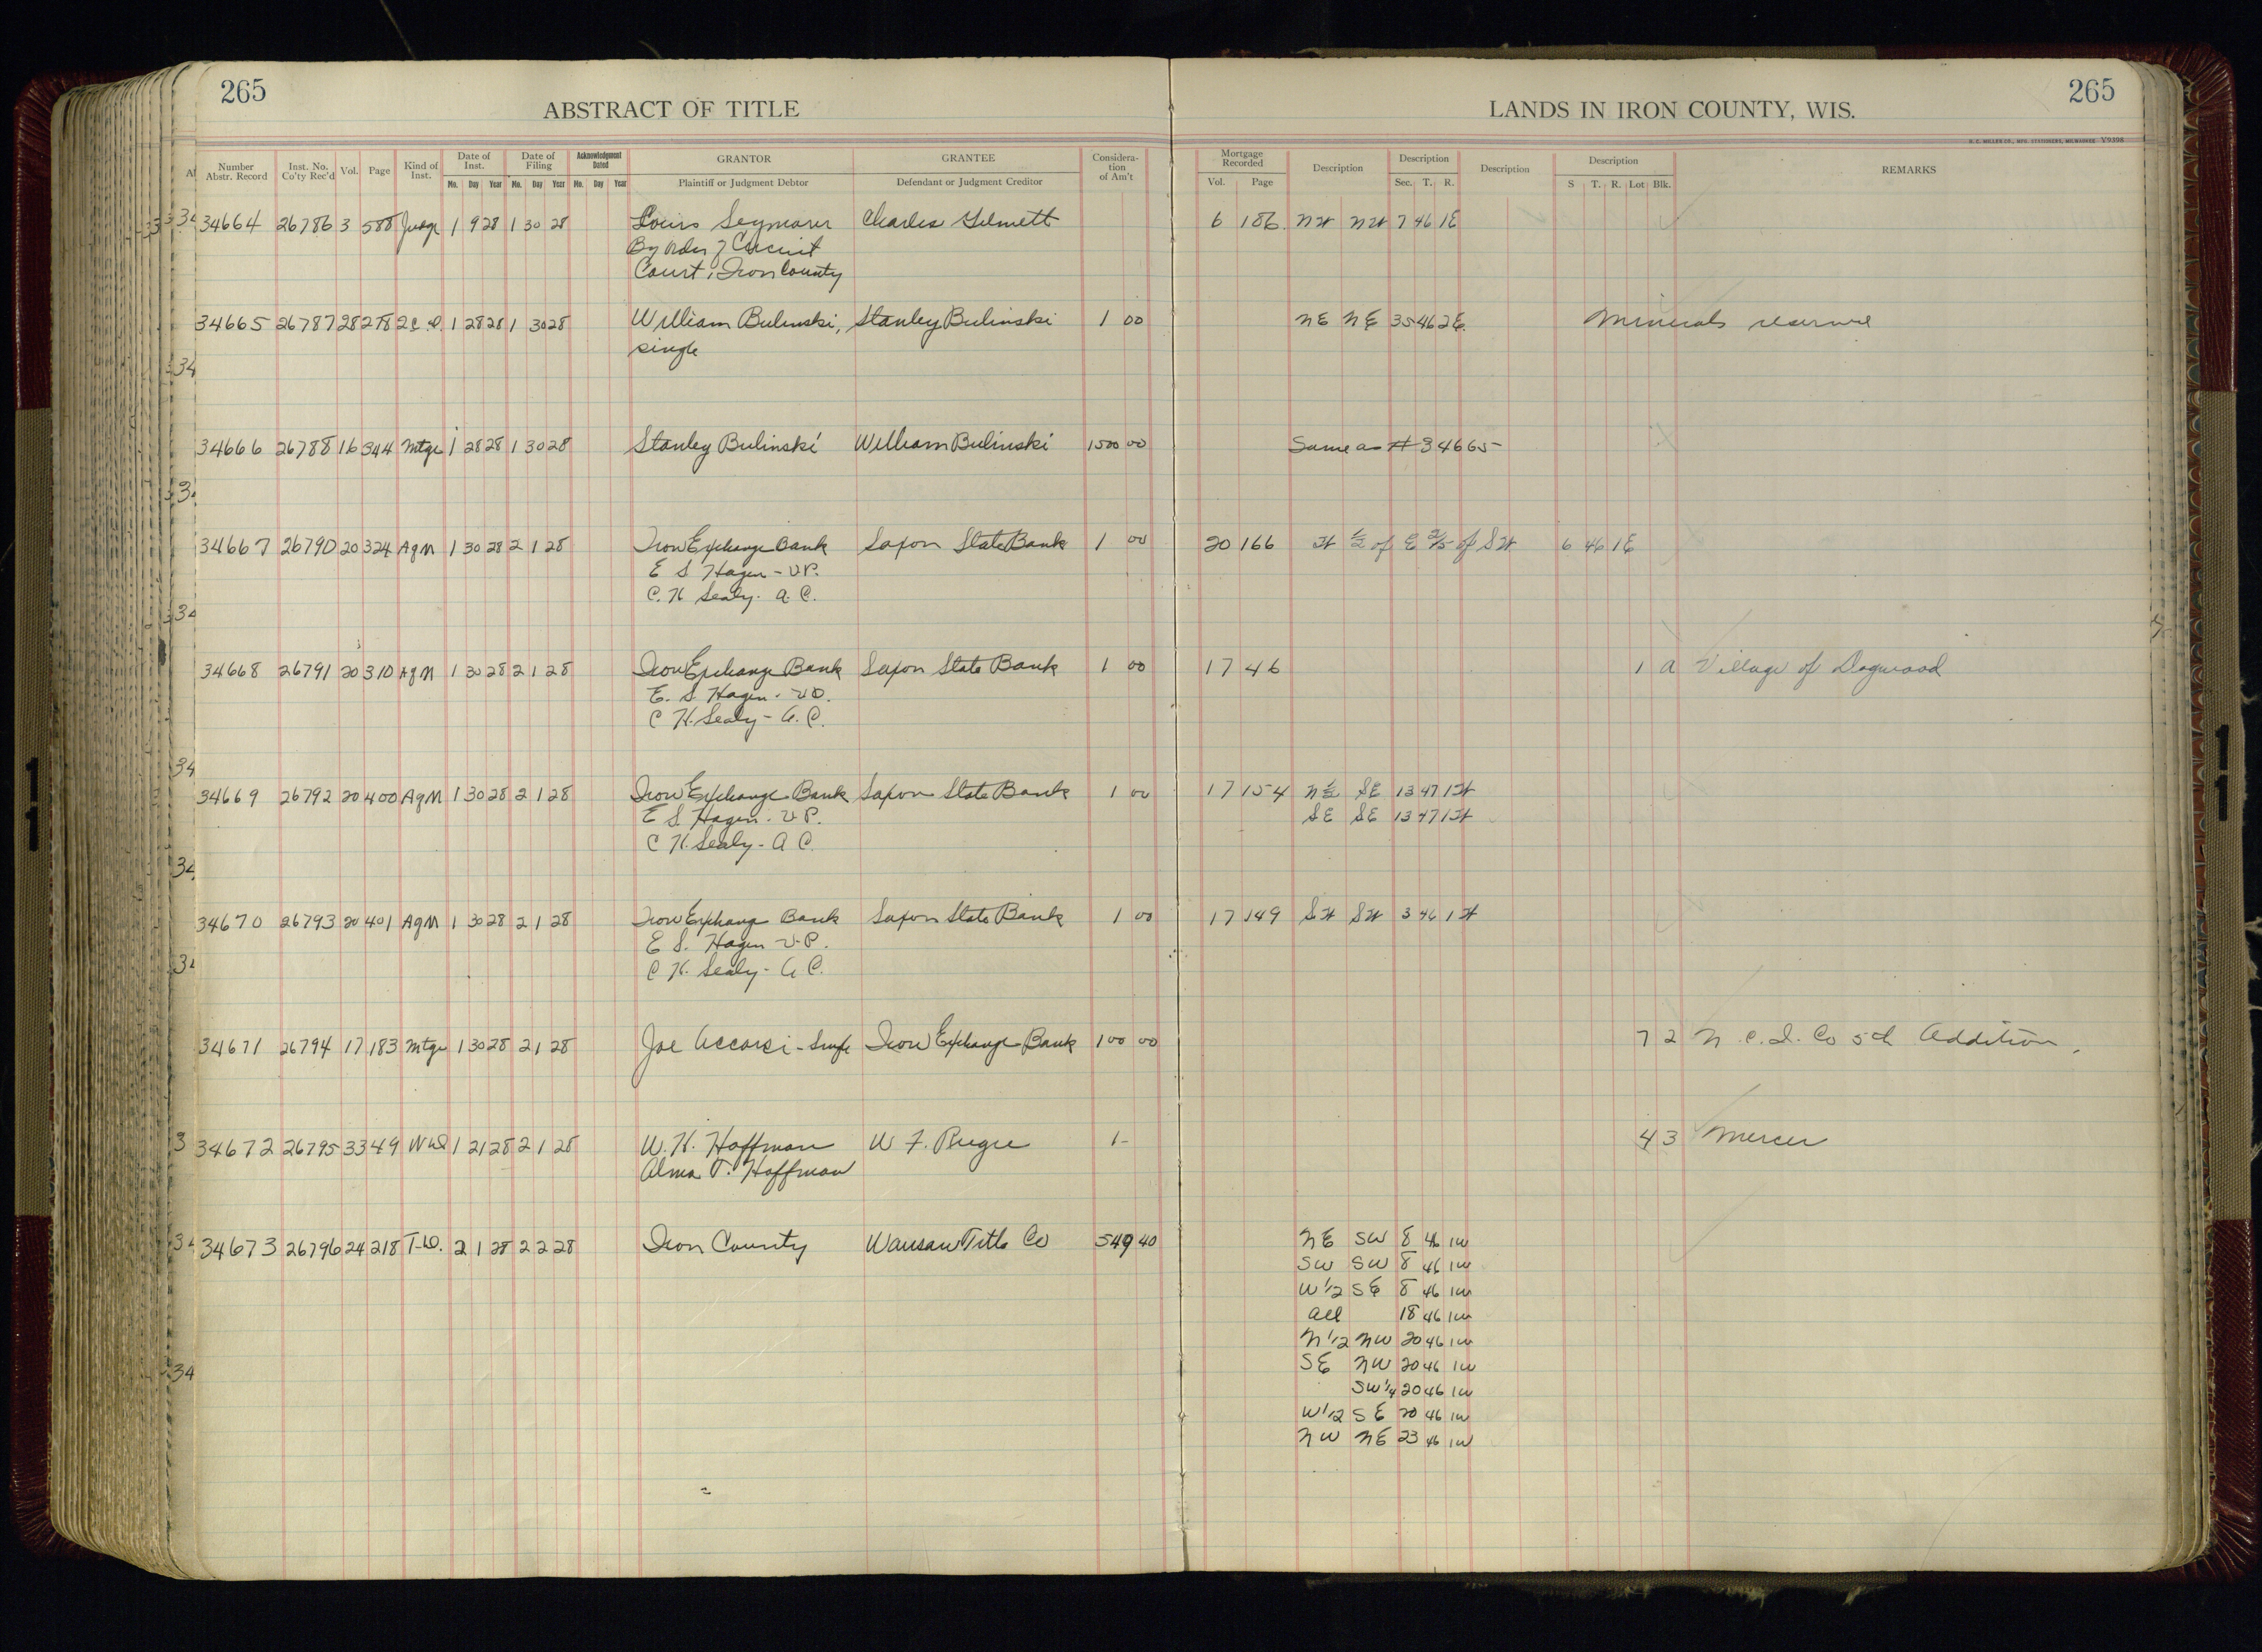 265
265
ABSTRACT OF TITLE
LANDS IN IRON COUNTY, WIS.
H. C. MILLER CO., MFG. STATIONERS, MILWAUKEE V9398
Number Abstr. Record Inst. No. Co'ty Rec'd Vol. Page Kind of Inst. Date of Inst. Date of Filing Acknowledgment Dated GRANTOR GRANTEE Considera- tion of Am't Mortgage Recorded Description Description Description Description REMARKS
Mo. Day Year Mo. Day Year Mo. Day Year Plaintiff or Judgment Debtor Defendant or Judgment Creditor Vol. Page Sec. T. R. S T. R. Lot Blk.
34664 26786 3 588 Judge 1 9 28 1 30 28 Louis Seymour Charles 6 186 NW NW 7 46 1E
By order of Circuit
Court, Iron County
34665 26787 28 278 2 C.D. 1 28 28 1 30 28 William Bulinski, Stanley Bulinski 1 00 NE NE 35 46 2E. Minerals reserve
single
34666 26788 16 344 Mtge 1 28 28 1 30 28 Stanley Bulinski William Bulinski 1500 00 Same as # 34665
34667 26790 20 324 AgM 1 30 28 2 1 28 Iron Exchange Bank Saxon State Bank 1 00 20 166 W ½ of E 2/5 of SW 6 46 1E
E S Hagen - V.P.
C. H Sealy - A. C.
34668 26791 20 310 AgM 1 30 28 2 1 28 Iron Exchange Bank Saxon State Bank 1 00 17 46 1 A Village of Dogwood
E. S. Hagen - V.P.
C H. Sealy - A. C.
34669 26792 20 400 AgM 1 30 28 2 1 28 Iron Exchange Bank Saxon State Bank 1 00 17 154 N ½ SE 13 47 1W
E S. Hagen - V.P. SE SE 13 47 1W
C H. Sealy - A C.
34670 26793 20 401 AgM 1 30 28 2 1 28 Iron Exchange Bank Saxon State Bank 1 00 17 149 SW SW 3 46 1W
E S. Hagen V.P.
C H. Sealy - A C.
34671 26794 17 183 Mtge 1 30 28 2 1 28 Joe Accorsi - Single Iron Exchange Bank 100 00 7 2 N. C. I. Co 5th Addition.
34672 26795 33 49 WD 1 21 28 2 1 28 W. H. Hoffman W F. 1- 4 3 Mercer
Alma T. Hoffman
34673 26796 24 218 T-D. 2 1 28 2 2 28 Iron County Wausau Title Co 549 40 NE SW 8 46 1W
SW SW 8 46 1W
W 1/2 SE 8 46 1W
All 18 46 1W
N 1/2 NW 20 46 1W
SE NW 20 46 1W
SW 1/4 20 46 1W
W 1/2 SE 20 46 1W
NW NE 23 46 1W